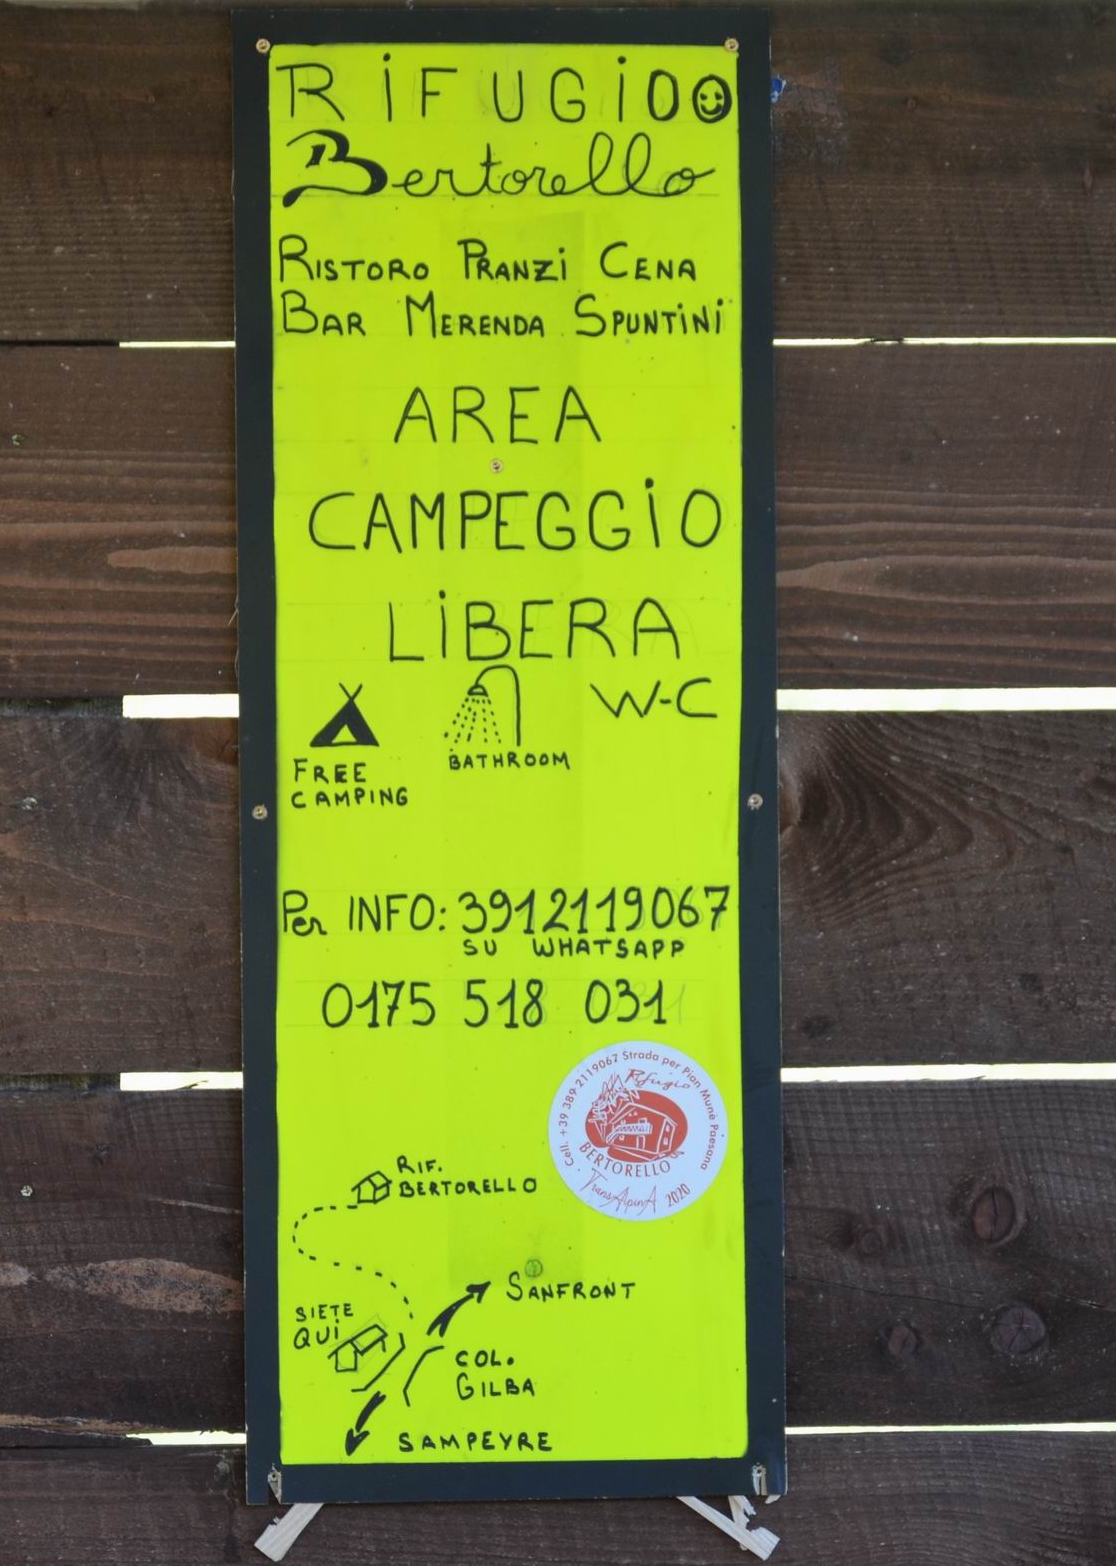 RiFUGiO
Bertorello
RISTORO PRANZi CENA
BAR MERENDA SPUNTiNi
AREA
CAMPEGGiO
LiBERA
W-C
FREE
CAMPING
BATHROOM
Per INFO: 3912119067
SU WHATSAPP
0175 518 031
Cell. +39 389 2119067 Strada per Pian Munè Paesana
Rifugio
BERTORELLO
TransAlpinA 2020
RIF.
BERTORELLO
SANFRONT
SIETE
QUi
COL.
GILBA
SAMPEYRE